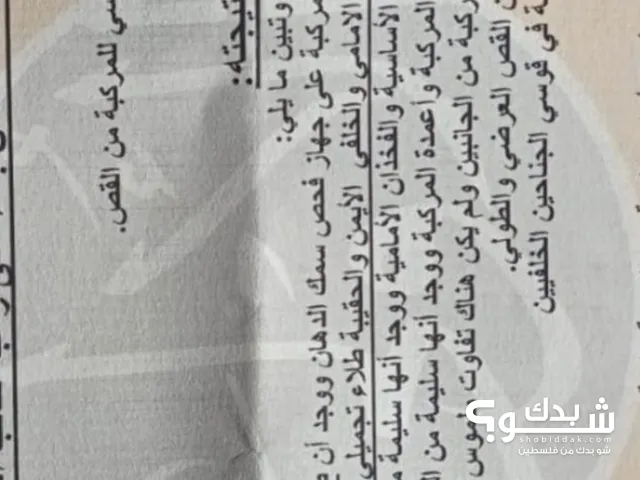 سي للمركبة من القص.
نتيجته:
وتبين ما يلي:
مركبة على جهاز فحص سمك الدهان ووجد أن
الامامي والخلفي الأيمن والحقيبة طلاء تجميلي
الأساسية والفخذان الأمامية ووجد أنها سليمة
المركبة وأعمدة المركبة ووجد أنها سليمة من
ركبة من الجانبين ولم يكن هناك تفاوت
القص العرضي والطولي.
ة في قوسي الجناحين الخلفيين
شو بدك؟
shobiddak.com
شو بدك من فلسطين